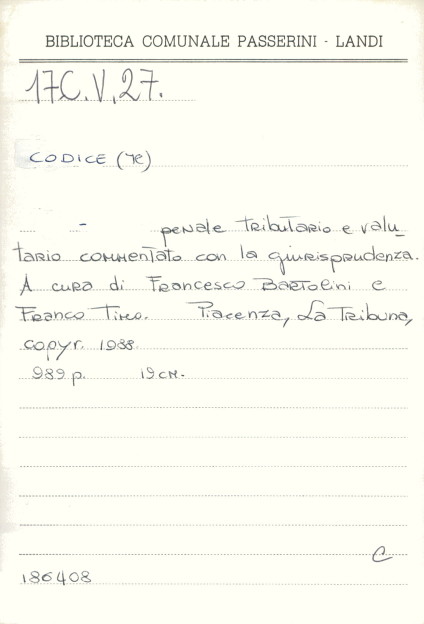 BIBLIOTECA COMUNALE PASSERINI - LANDI
17C.V.27.
CODICE (Il)
- penale tributario e valu-
tario commentato con la giurisprudenza.
A cura di Francesco Bartolini e
Franco Tirò. Piacenza, La Tribuna,
copyr. 1988.
989 p. 19 cm.
C
186408